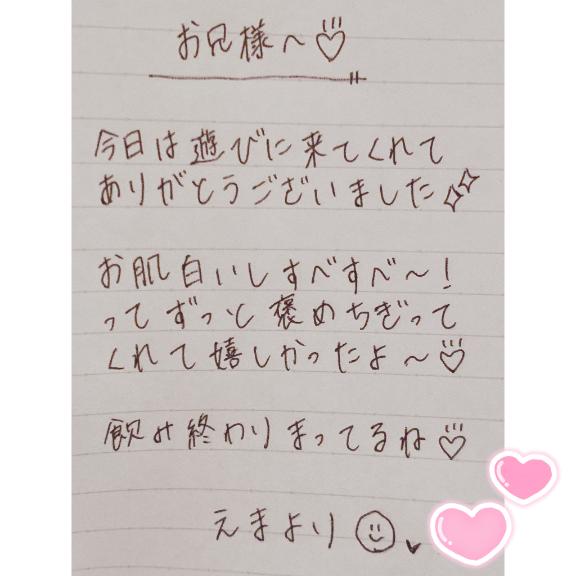 お兄様～♡
今日は遊びに来てくれて
ありがとうございました✨
お肌白いしすべすべ～！
ってずっと褒めちぎって
くれて嬉しかったよ～♡
飲み終わりまってるね♡
えまより☺